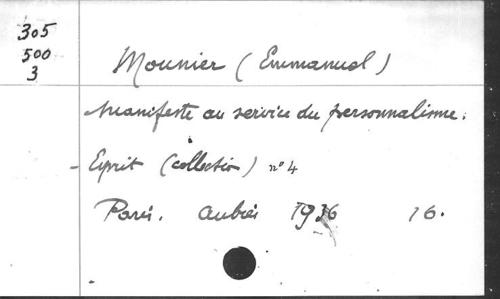 305
500
3
Mounier (Emmanuel)
Manifeste au service du personnalisme.
- Esprit (collection) n° 4
Paris. Aubier 1936 16.